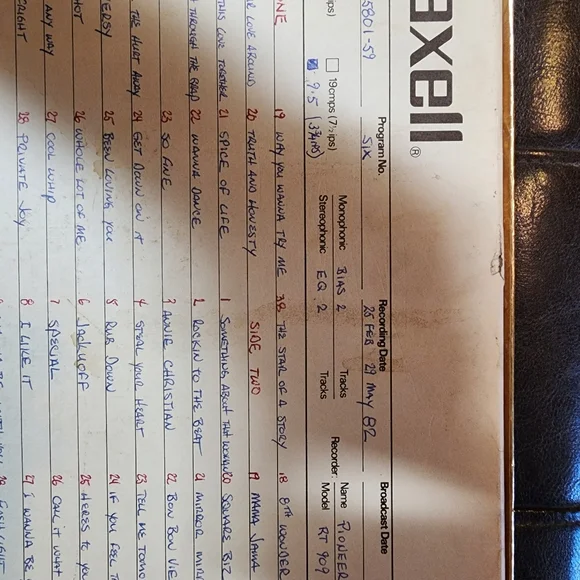 axell®
5801-59 Program No. SIX Recording Date 25 FEB 29 MAY 82 Broadcast Date
Monophonic BIAS 2 Tracks Name PIONEER
19cmps (7½ips) 9.5 (3¾ips) Stereophonic EQ 2 Tracks Recorder: Model RT 909
19 WHY YOU WANNA TRY ME 38 THE STAR OF A STORY 18 8TH WONDER
LOVE AROUND 20 TRUTH AND HONESTY SIDE TWO 19 MAMA JAMA
THIS LOVE TOGETHER 21 SPICE OF LIFE 1 SOMETHING ABOUT THAT 20 SQUARE BIZ
THROUGH THE 22 WANNA DANCE 2 ROCKIN TO THE BEAT 21 MIRROR
23 SO FINE 3 ANNIE CHRISTIAN 22 BON BON VIE
THE HURT AWAY 24 GET DOWN ON IT 4 STEAL YOUR HEART 23 TELL ME
25 BEEN LOVING YOU 5 RUB DOWN 24 IF YOU FEEL
HOT 26 WHOLE LOT OF ME 6 JACK U OFF 25 HERES TO
ANY WAY 27 COOL WHIP 7 SPECIAL 26 CALL IT WHAT
28 PRIVATE JOY 8 I LIKE IT 27 I WANNA BE